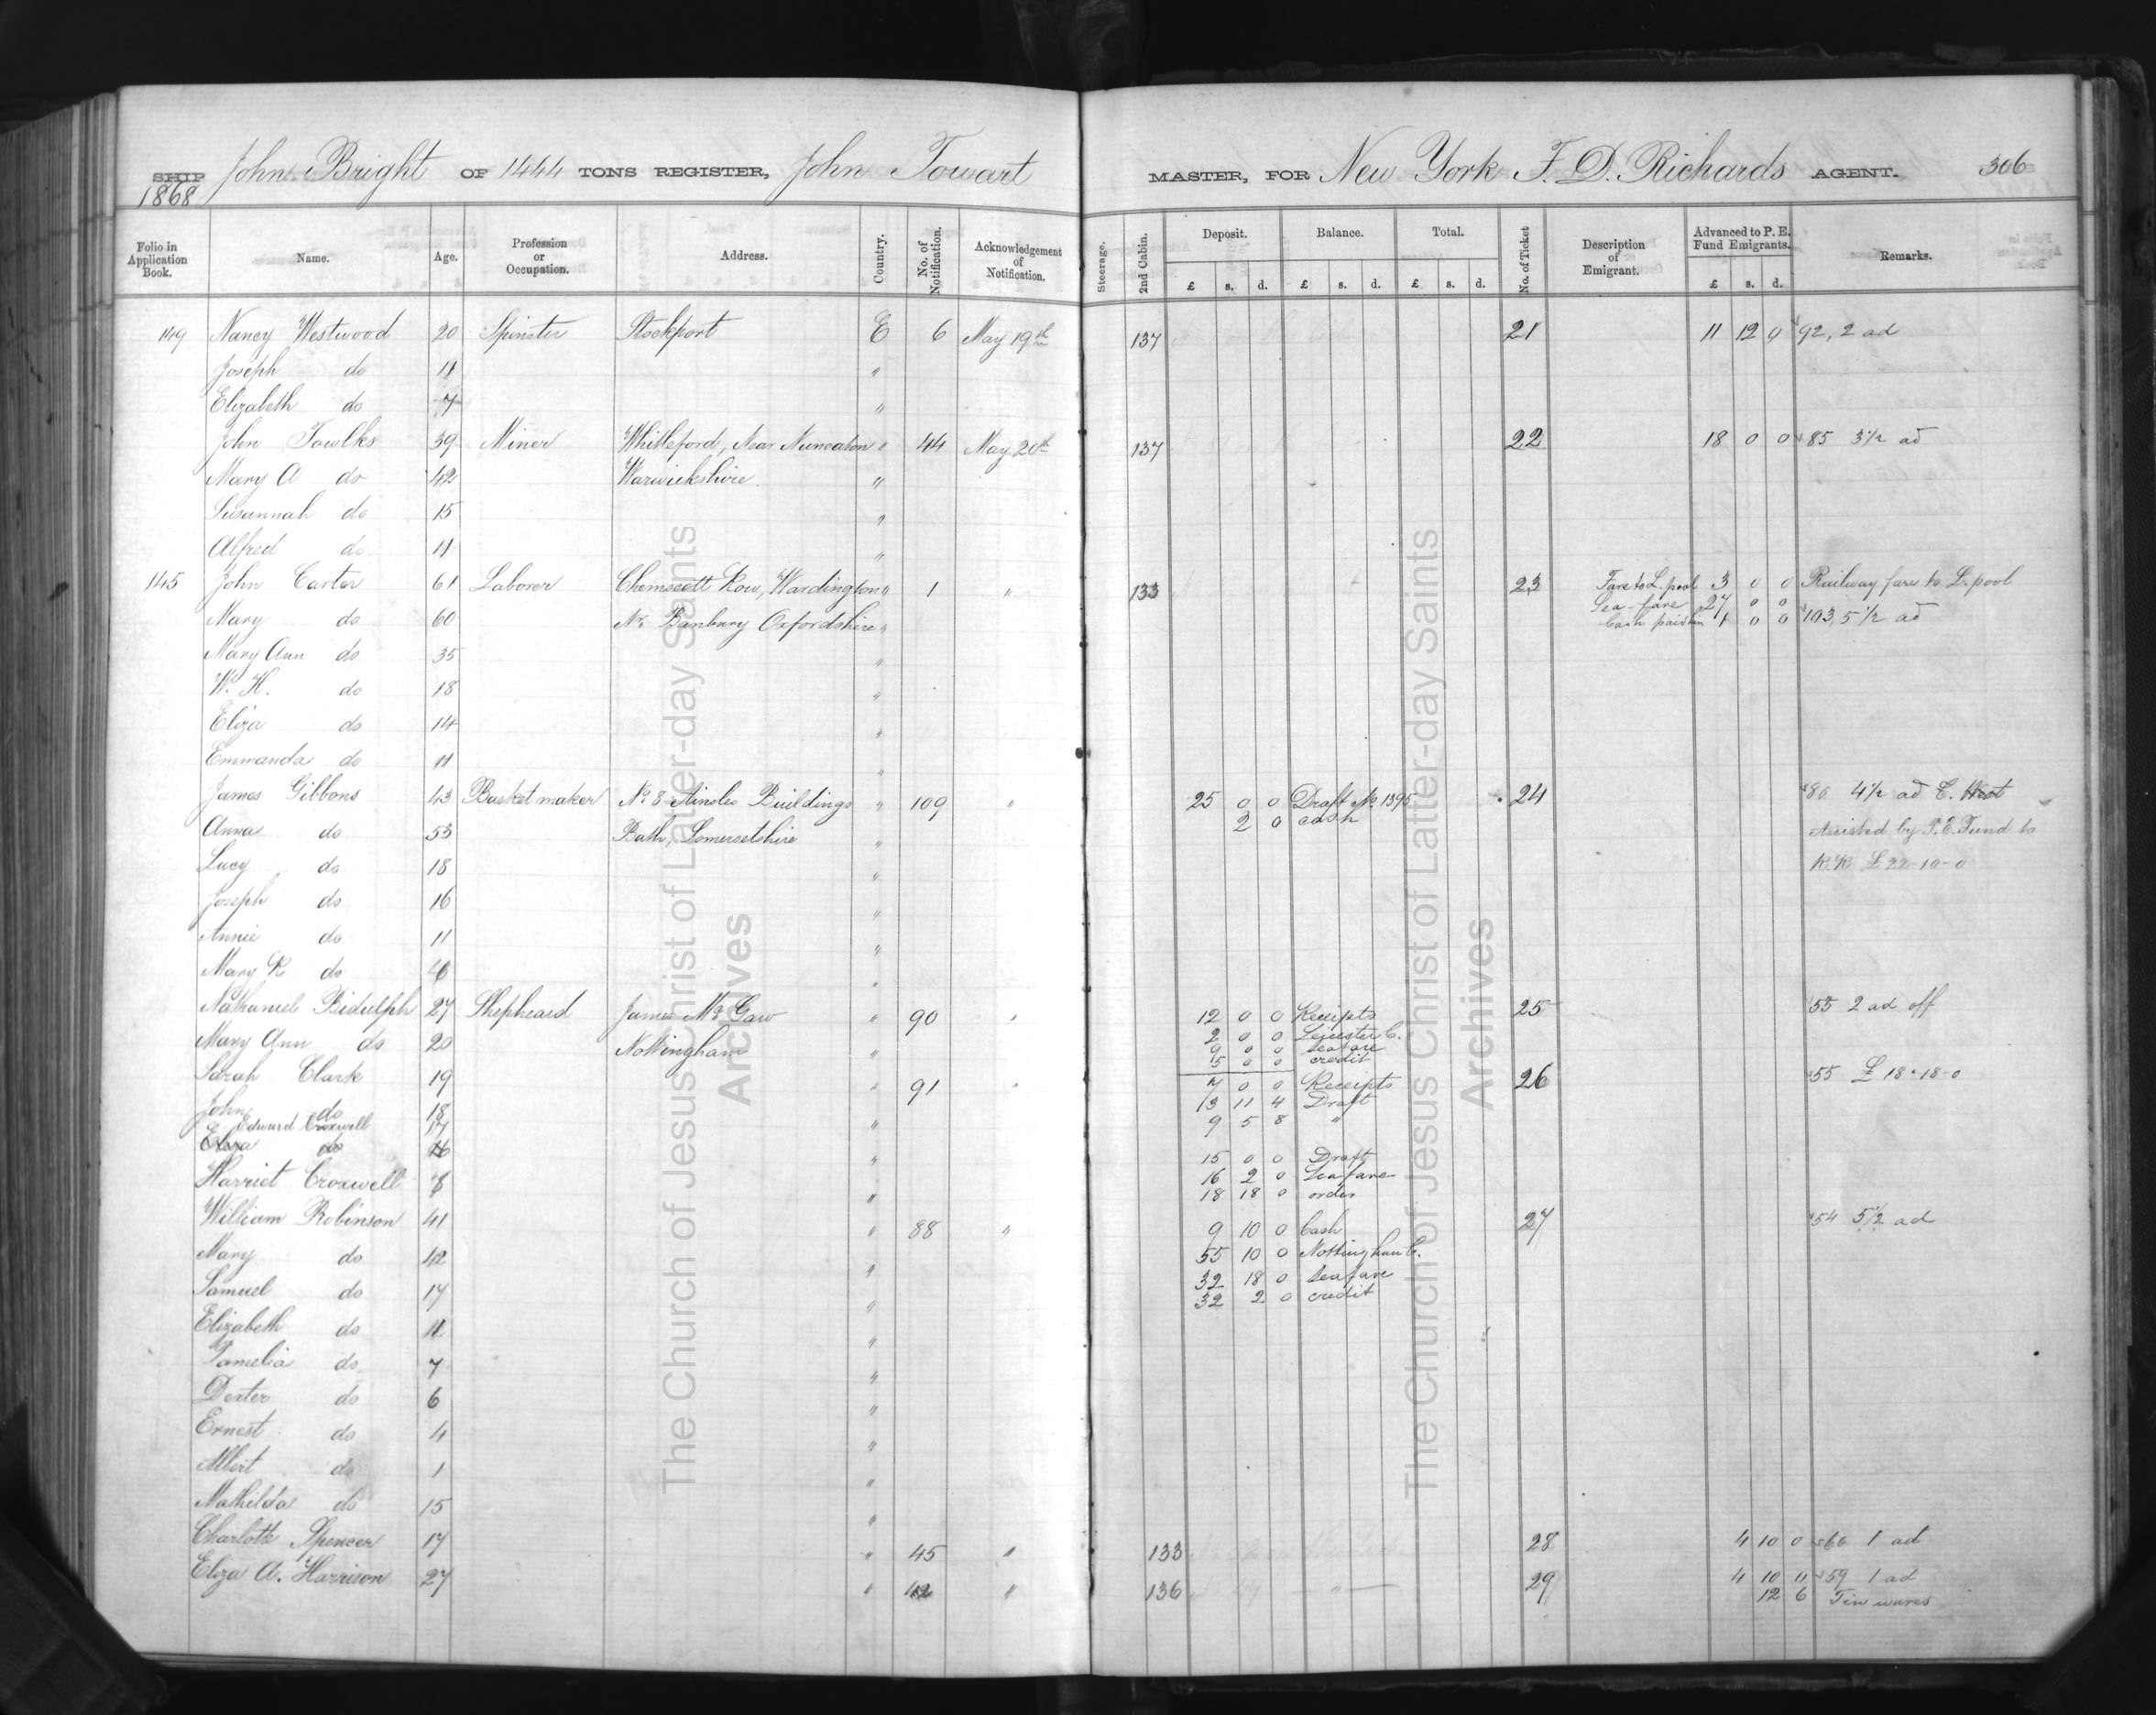 SHIP John Bright OF 1444 TONS REGISTER, John Towart MASTER, FOR New York F. D. Richards AGENT. 306
1868
Folio in Application Book. Name. Age. Profession or Occupation. Address. Country. No. of Notification. Acknowledgement of Notification. Steerage. 2nd Cabin. Deposit. Balance. Total. No. of Ticket Description of Emigrant. Advanced to P. E. Fund Emigrants. Remarks.
£ s. d. £ s. d. £ s. d. £ s. d.
149 Nancy Westwood 20 Spinster Stockport E 6 May 19th 137 21 11 12 0 92, 2 ad
Joseph do 11 "
Elizabeth do 7 "
John Fowlks 39 Miner Whitleford, Near Nuneaton " 44 May 20th 137 22 18 0 0 85 3½ ad
Mary A do 42 Warwickshire. "
Susannah do 15 "
Alfred do 11 "
145 John Carter 61 Laborer Chemscott Row, Wardington " 1 " 133 23 Fare to L.pool 3 0 0 Railway fare to L.pool
Sea-fare 27 0 0
Mary do 60 Nr. Banbury Oxfordshire " Cash paid 1 0 0 103, 5½ ad
Mary Ann do 35 "
W. H. do 18 "
Eliza do 14 "
Emmanda do 11 "
James Gibbons 43 Basket maker No 8 Ainslie Buildings " 109 " 25 0 0 Draft No 1395 24 86 4½ ad
2 0 cash
Anna do 53 Bath, Somersetshire " Assisted by P.E. Fund to
Lucy do 18 " R.R £22-10-0
Joseph do 16 "
Annie do 11 "
Mary R do "
Nathaniel Bidulph 27 Shepheard James McGaw " 90 " 12 0 0 Receipts 25 55 2 ad off
Mary Ann do 20 Nottingham " 2 0 0 Leicester C.
9 0 0 seafare
5 0 0 credit
Sarah Clark 19 " 91 " 7 0 0 Receipts 26 55 £18-18-0
John do 18 13 11 4 Draft
Edward Croxwell 17 " 9 5 8 "
Eliza do "
15 0 0 Draft
Harriet Croxwell 8 " 16 2 0 Seafare
18 18 0 order
William Robinson 41 " 88 " 9 10 0 Cash 27 54 5½ ad
Mary do 42 " 55 10 0 Nottingham C.
Samuel do 17 " 32 18 0 seafare
32 2 0 credit
Elizabeth do 11 "
Pamelia do 7 "
Dexter do 6 "
Ernest do 4 "
Albert do 1 "
Mathilda do 15 "
Charlotte Spencer 17 " 45 " 133 28 4 10 0 60 1 ad
Eliza A. Harrison 27 " 42 " 136 29 4 10 0 59 1 ad
12 6 Tin wares
The Church of Jesus Christ of Latter-day Saints
Archives
The Church of Jesus Christ of Latter-day Saints
Archives